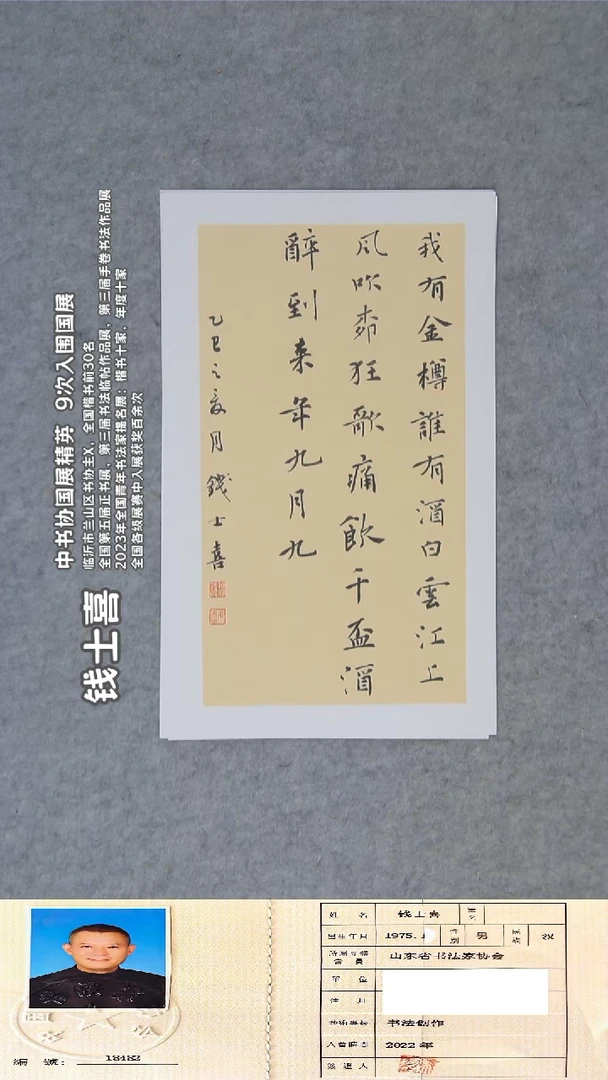 钱士喜
中书协国展精英 9次入围国展
临沂市兰山区书协主X，全国楷书前30名
全国第五届正书展、第三届书法临帖作品展、第三届手卷书法作品展
2023年全国青年书法家提名展：楷书十家，年度十家
全国各级展赛中入展获奖百余次
我有金樽誰有酒白雲江上
風吹柳狂歌痛飲千盃酒
醉到来年九月九
乙巳之夏月錢士喜
編號：18482
姓名 钱士喜
出生年月 1975. 性别 男 民族 汉
山东省书法家协会
单位
住址
书法创作
入会时间 2022年